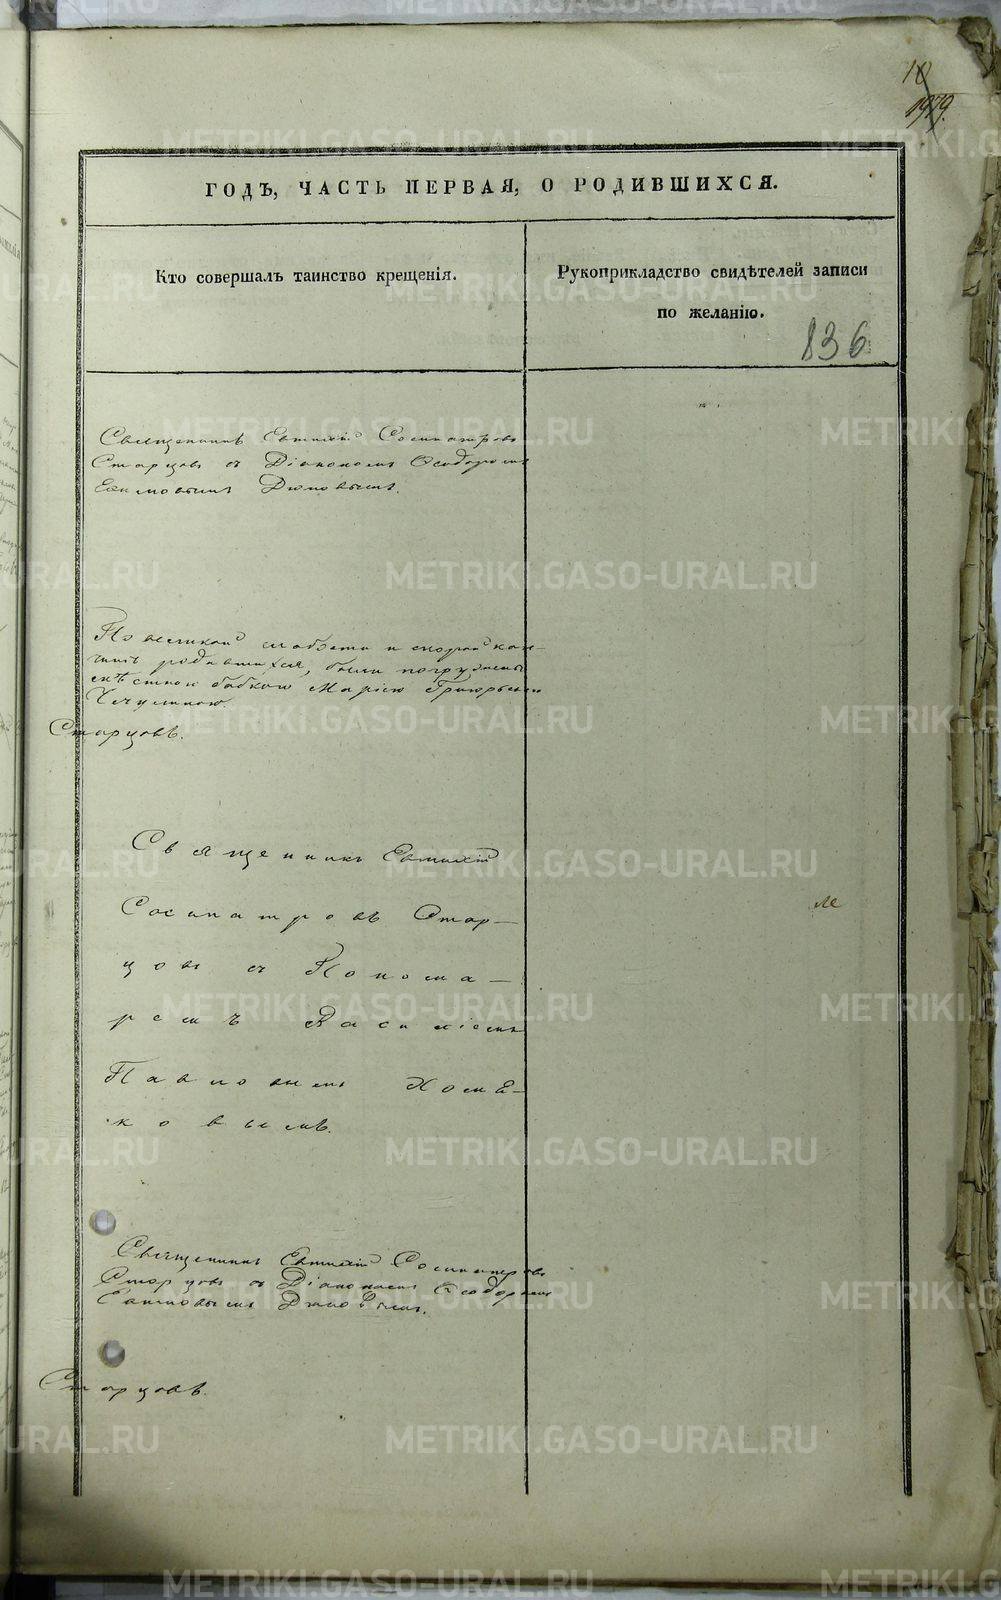 10
1979.
ГОДЪ, ЧАСТЬ ПЕРВАЯ, О РОДИВШИХСЯ.
Кто совершалъ таинство крещенія.
Рукоприкладство свидѣтелей записи
по желанію.
836
Священникъ Евтихій Сосипатровъ
Старцовъ съ Діакономъ Ѳеодоромъ
Евимовымъ
По великой слабости и скорой кон-
чинѣ родившихся, были погружены
мѣстною бабкою Маріею Григорьевою
Старцовъ.
Священникъ Евтихій
Сосипатровъ Стар-
цовъ съ Понома-
ремъ Василіемъ
Павловымъ Хомя-
ковымъ.
Священникъ Евтихій Сосипатровъ
Старцовъ съ Діакономъ Ѳеодоромъ
Евимовымъ
Старцовъ.
METRIKI.GASO-URAL.RU